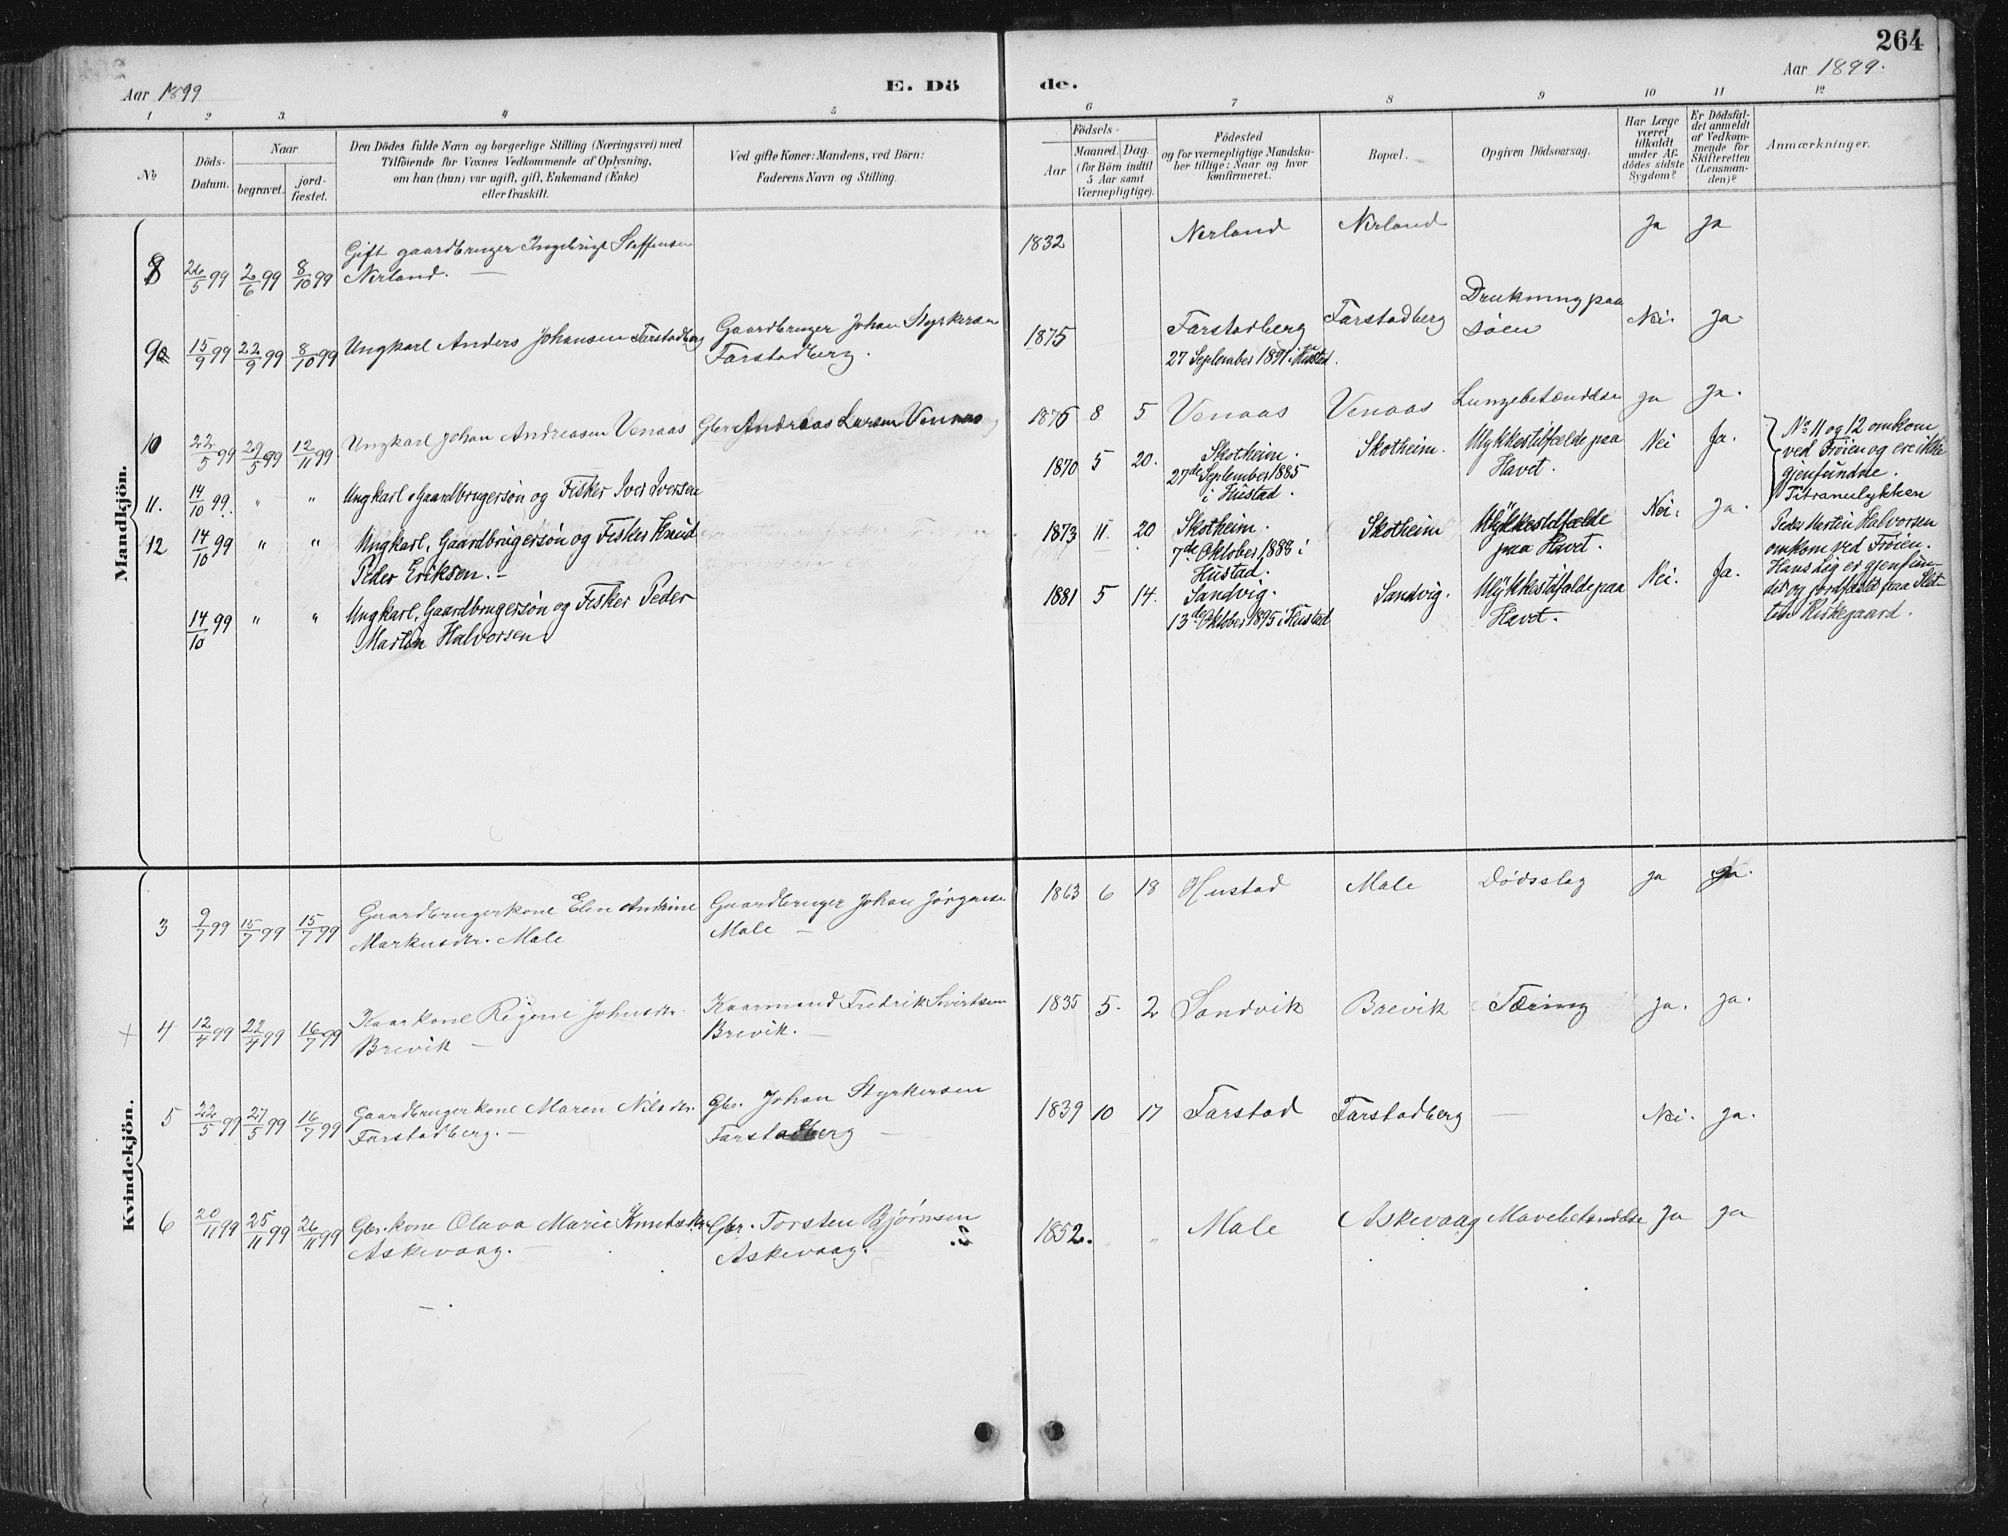 264
Aar 1899
E. Dö
de.
Aar 1899.
1 2 3. 4 5 6 7 8 9 10 11 12
No
Döds-
Datum.
Naar
begravet.
jord-
fæstet.
Den Dödes fulde Navn og borgerlige Stilling (Næringsvei) med
Tilföiende for Voxnes Vedkommende af Oplysning,
om han (hun) var ugift, gift, Enkemand (Enke)
eller fraskilt.
Ved gifte Koner: Mandens, ved Börn:
Faderens Navn og Stilling.
Födsels-
Aar
Maaned. Dag.
(for Börn indtil
5 Aar samt
Værnepligtige).
Födested
og for værnepligtige Mandska-
ber tillige: Naar og hvor
konfirmeret.
Bopæl.
Opgiven Dödsaarsag.
Har Læge
været
tilkaldt
under Af-
dödes sidste
Sygdom?
Er Dödsfal-
det anmeldt
af Vedkom-
mende for
Skifteretten
(Lensman-
den)?
Anmærkninger.
Mandkjön.
8 26/5 99 2/6 99 8/10 99 Gift gaardbruger Ingebrigt Steffensen
Nerland. —
1832 Nerland Nerland Ja Ja
9 15/9 99 22/9 99 8/10 99 Ungkarl Anders Johansen Farstadberg Gaardbruger Johan Styrkersen
Farstadberg.
1875 Farstadberg Farstadberg Drukning paa
Søen Nei. Ja.
27 September 1891 i Hustad.
10 22/5 99 29/5 99 12/11 99 Ungkarl Johan Andreasen Venaas Gbr Andreas Larsen Venaas
1876 8 5 Venaas Venaas Lungebetændelse Ja Ja.
11. 14/10 99. " " Ungkarl, Gaardbrugersøn og Fisker Iver Iversen
1870 5 20. Skotheim.
27de September 1885
i Hustad. Skotheim. Ulykkestilfælde paa
Havet. Nei Ja.
No 11 og 12 omkom
ved Frøien og ere ikke
gjenfundne.
Titranulykken
12 14/10 99 " " Ungkarl, Gaardbrugersøn og Fisker Knud
Peder Eriksen. —
1873 11. 20 Skotheim.
7de Oktober 1888 i
Hustad. Skotheim Ulykkestilfælde
paa Havet. Nei. Ja.
14/10 99 " " Ungkarl, Gaardbrugersøn og Fisker Peder
Martin Halvorsen.
1881 5 14. Sandvig.
13de Oktober 1895 i Hustad Sandvig. Ulykkestilfælde paa
Havet. Nei. Ja.
Peder Martin Halvorsen
omkom ved Frøien.
Hans Lig er gjenfun-
det og jordfæstet paa Slet-
ten Kirkegaard.
Kvindekjön.
3 9/7 99 15/7 99 15/7 99 Gaardbrugerkone Elen Andrine
Markusdtr. Male Gaardbruger Johan Jørgensen
Male —
1863 6 18 Hustad Male Dødsslag Ja Ja.
+ 4 12/4 99 22/4 99 16/7 99 Kaarkone Regine Johnsdtr.
Brevik — Kaarmand Fredrik Sivertsen
Brevik. —
1835 5. 2 Sandvik Brevik Tæring Ja. Ja.
5 22/5 99 27/5 99 16/7 99 Gaardbrugerkone Maren Nilsdtr.
Farstadberg. — Gbr. Johan Styrkersen
Farstadberg —
1839 10 17 Farstad Farstadberg — Nei. Ja.
6 20/11 99 25/11 99 26/11 99 Gbr.kone Olava Marie Knudsdtr.
Askevaag. — Gbr. Torsten Bjørnsen
Askevaag.
1852. " Male Askevaag Mavebetændelse Ja Ja